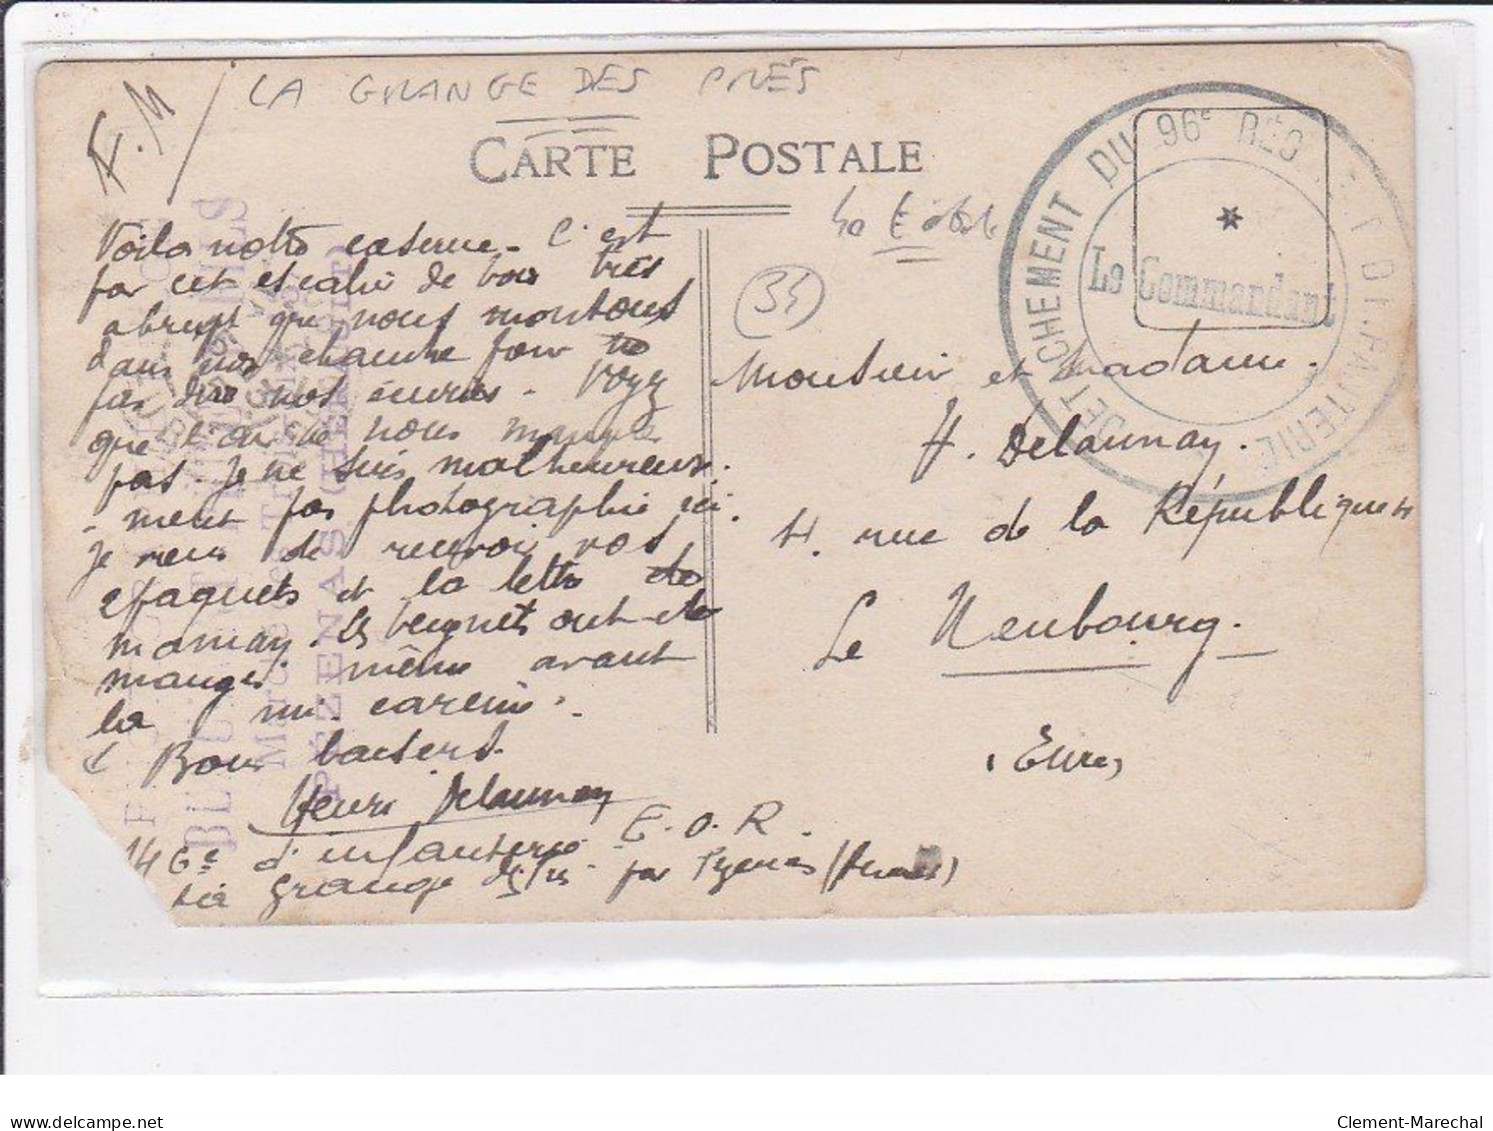 F.M
LA GRANGE DES PRÉS
CARTE POSTALE
DETACHEMENT DU 96e REG D'INFANTERIE
Le Commandant
34
Voila notre caserne. C'est
par cet escalier de bois très
abrupt que nous montons
dans nos chambre pour
pas dire nos écuries. Voyez
que l'air ne nous manque
pas. Je ne suis malheureuse
-ment pas photographié ici.
Je viens de recevoir vos
2 paquets et la lettre de
maman. Les beignets ont été
mangés même avant
la mi-carême.
Bons baisers.
Henri Delaunay
E.O.R.
146e d'infanterie
La grange des Prés par Pézenas (Hérault)
Monsieur et Madame.
H. Delaunay.
4. rue de la République
Le Neubourg.
(Eure)
PÉZENAS (HÉRAULT)
delcampe.net
Clement-Marechal